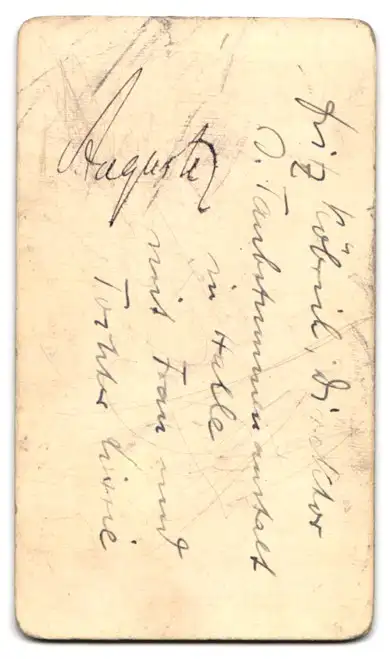 Fritz Köbrich, Direktor
d. Taubstummenanstalt
in Halle
mit Frau und
Tochter
Auguste